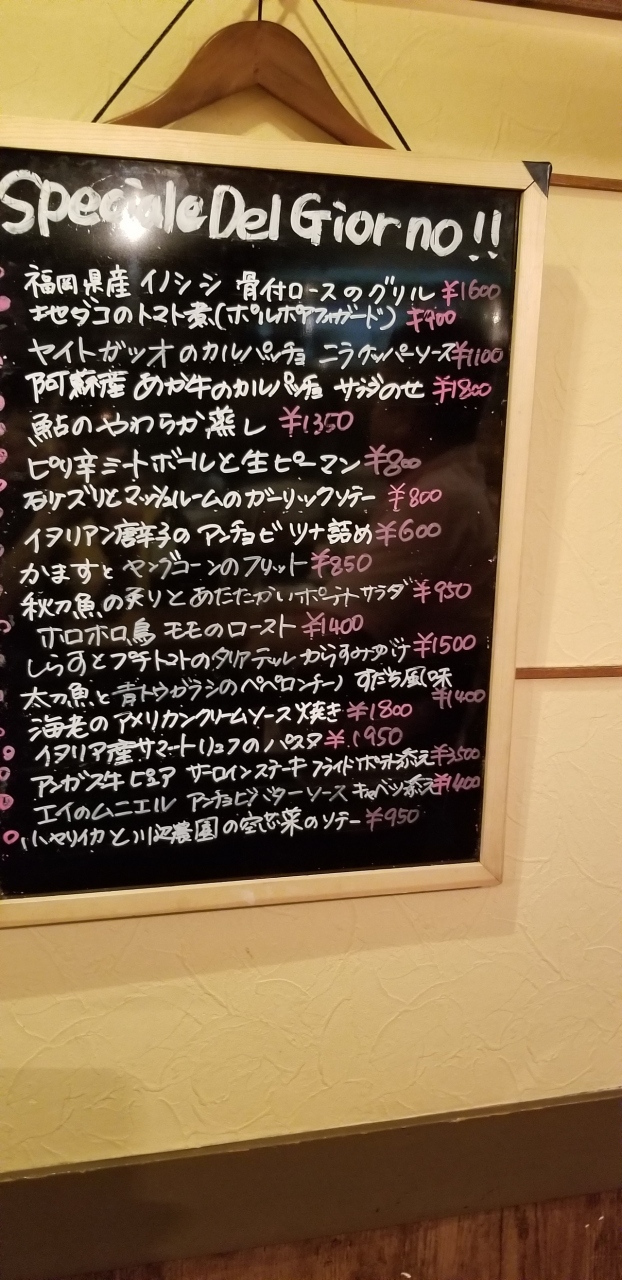 Speciale Del Giorno!!
福岡県産 イノシシ 骨付ロースのグリル ¥1600
地ダコのトマト煮(ポルポアフォガード) ¥900
ヤイトガツオのカルパッチョ ニラケッパーソース ¥1100
阿蘇産 あか牛のカルパッチョ サラダのせ ¥1800
鮎のやわらか蒸し ¥1350
ピリ辛ミートボールと生ピーマン ¥800
石ケズリとマッシュルームのガーリックソテー ¥800
イタリアン唐辛子の アンチョビ ツナ詰め ¥600
かますと ヤングコーンのフリット ¥850
秋刀魚の炙りと あたたかいポテトサラダ ¥950
ホロホロ鳥 モモのロースト ¥1400
しらすとプチトマトのタリアテッレ からすみがけ ¥1500
太刀魚と青トウガラシのペペロンチーノ すだち風味 ¥1400
海老のアメリカンクリームソース焼き ¥1800
イタリア産サマートリュフのパスタ ¥1950
アンガス牛 ピュア サーロインステーキ フライドポテト添え ¥3500
エイのムニエル アンチョビバターソース キャベツ添え ¥1400
ハヤリイカと川辺農園の空芯菜のソテー ¥950